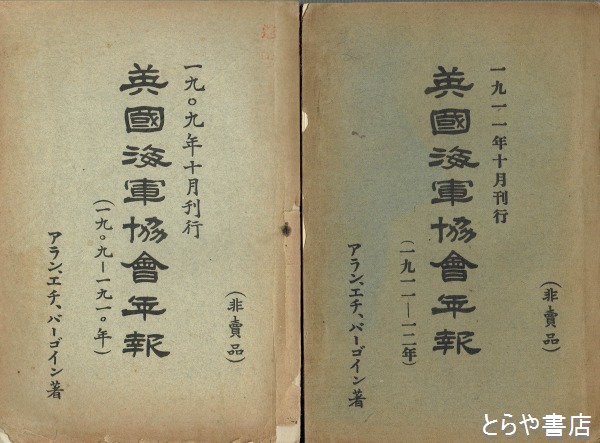 一九〇九年十月刊行
英國海軍協會年報
(一九〇九ー一九一〇年)
アラン、エチ、バーゴイン著
(非賣品)
一九一一年十月刊行
英國海軍協會年報
(一九一一ー一二年)
アラン、エチ、バーゴイン著
(非賣品)
とらや書店